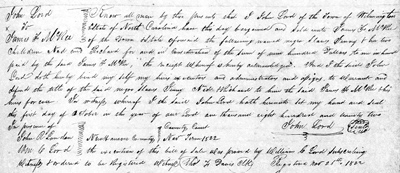 John Lord
To
James H McRee
Know all men by these presents that I John Lord of the Town of Wilmington
State of North Carolina have this day bargained and sold unto James H McRee
the Town aforesaid the following named negro Slaves Fanny & his two
Children Ned and Richard for and in Consideration of the Sum of nine hundred Dollars to me in hand
paid by the said James H McRee, the receipt whereof is hereby acknowledged. And I the said John
Lord doth hereby bind my self my heirs executors and administrators and assigns, to Warrant and
defend the title of the said negro Slaves Fanny Ned & Richard to him the said James H McRee his
heirs forever. In witness whereof I the said John Lord hath hereunto set my hand and seal
the first day of October in the year of our Lord one thousand eight hundred and twenty two
In presence of
John Lord
Seal
John D
Wm C Lord
New Hanover County
County Court
Nov Term 1822
the execution of this bill of Sale was proved by William C Lord Subscribing
Witness & ordered to be Registered
Thos F Davis Clk
Registered Nov 21st 1822